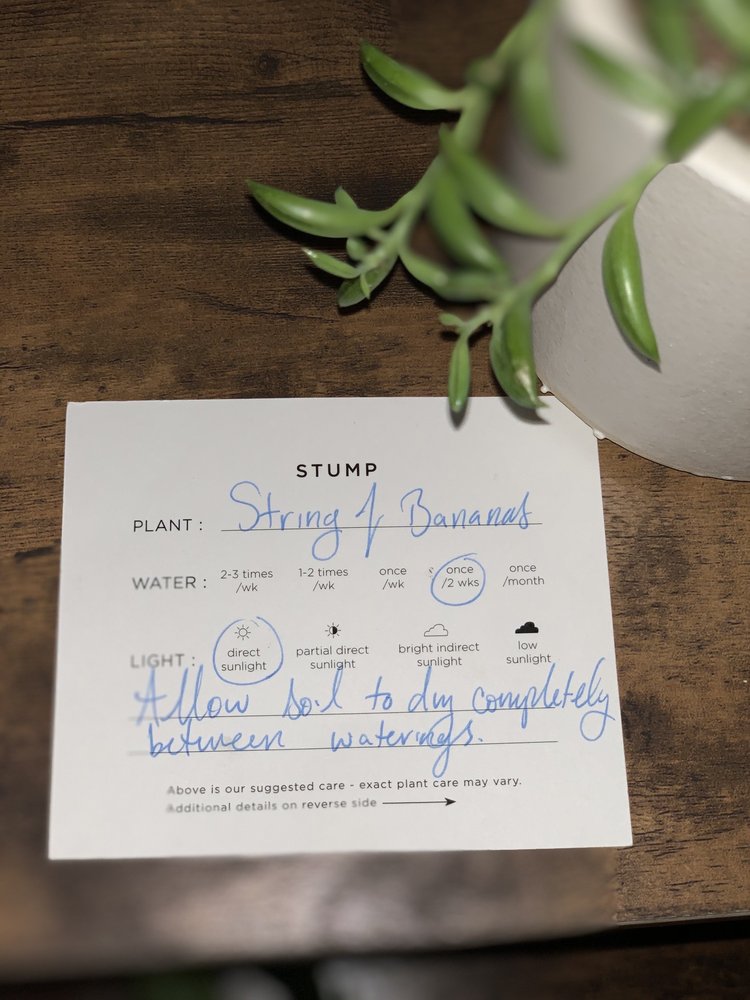 STUMP
PLANT : String of Bananas
WATER : 2-3 times /wk 1-2 times /wk once /wk once /2 wks once /month
LIGHT : direct sunlight partial direct sunlight bright indirect sunlight low sunlight
Allow soil to dry completely
between waterings.
Above is our suggested care - exact plant care may vary.
Additional details on reverse side